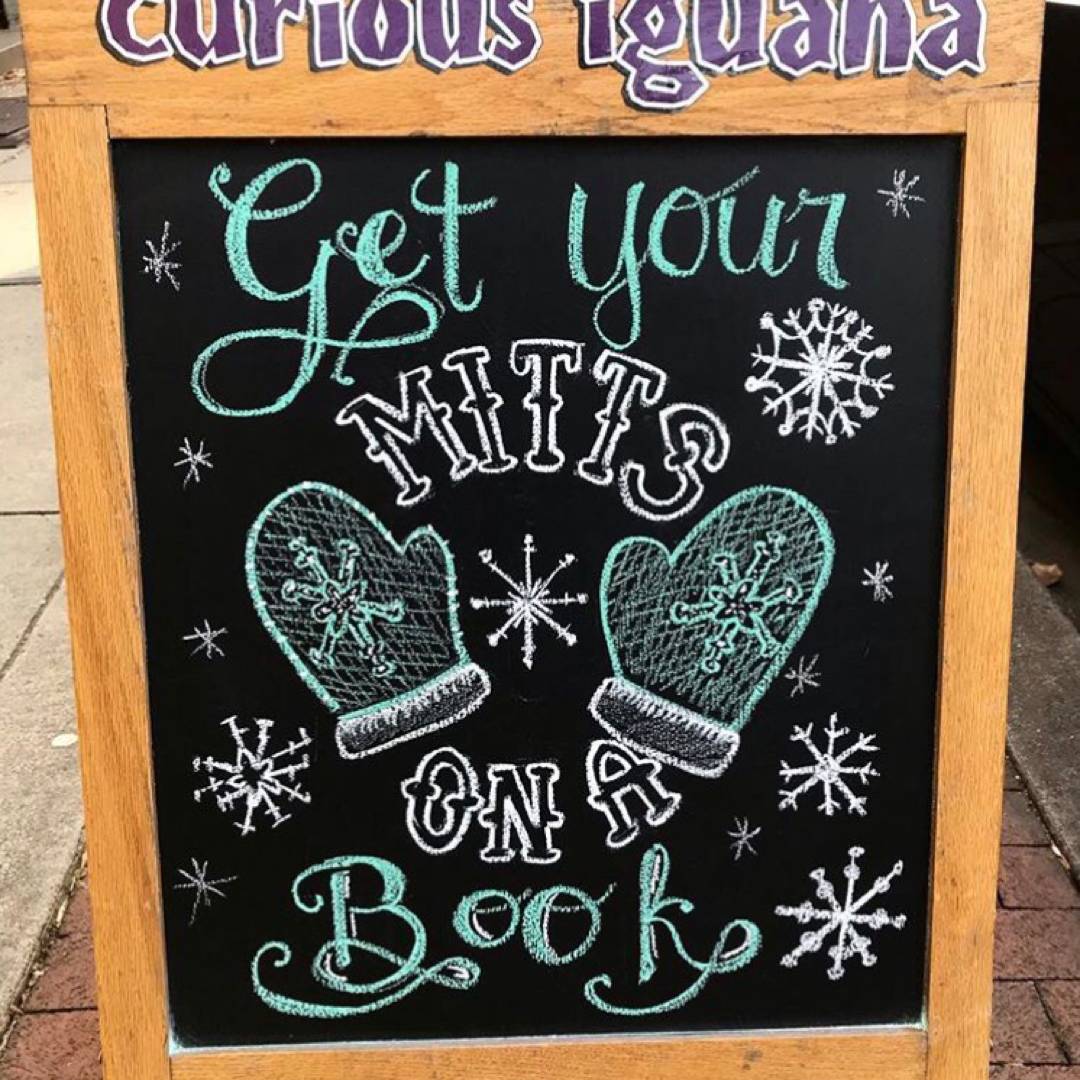 curious iguana
Get your
MITTS
ON A
Book